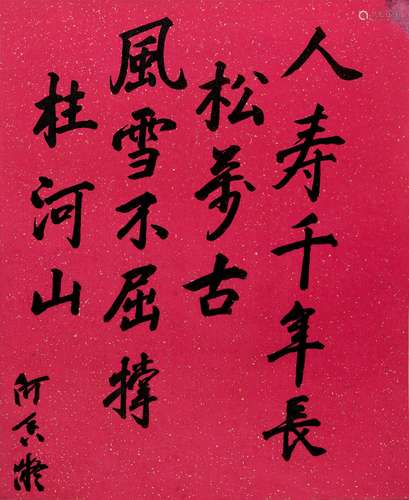 人寿千年長
松萬古
風雪不屈撑
柱河山
何香凝